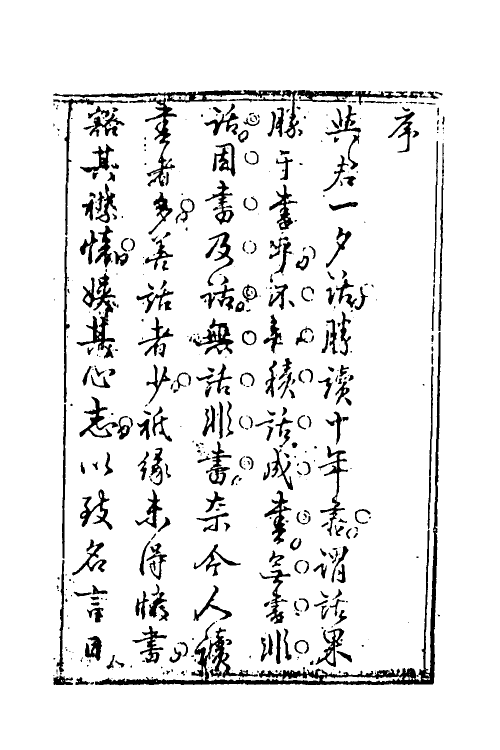 序
與君一夕話勝讀十年書謂話果
勝于書乎不知積話成書無書非
話因書及話無話非書奈今人讀
書者多善話者少祇緣未得快書
豁其襟懷娛其心志以致名言日